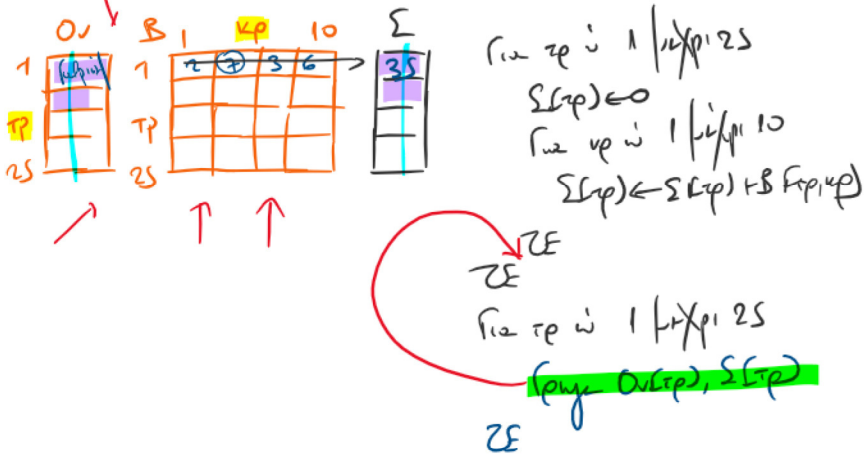 Ον Β 1 κρ 10 Σ
1 1 2 7 3 6 35
τρ τρ
25 25
Για τρ από 1 μέχρι 25
Σ[τρ]←0
Για κρ από 1 μέχρι 10
Σ[τρ]←Σ[τρ]+Β[τρ,κρ]
ΤΕ
ΤΕ
Για τρ από 1 μέχρι 25
Γράψε Ον[τρ], Σ[τρ]
ΤΕ